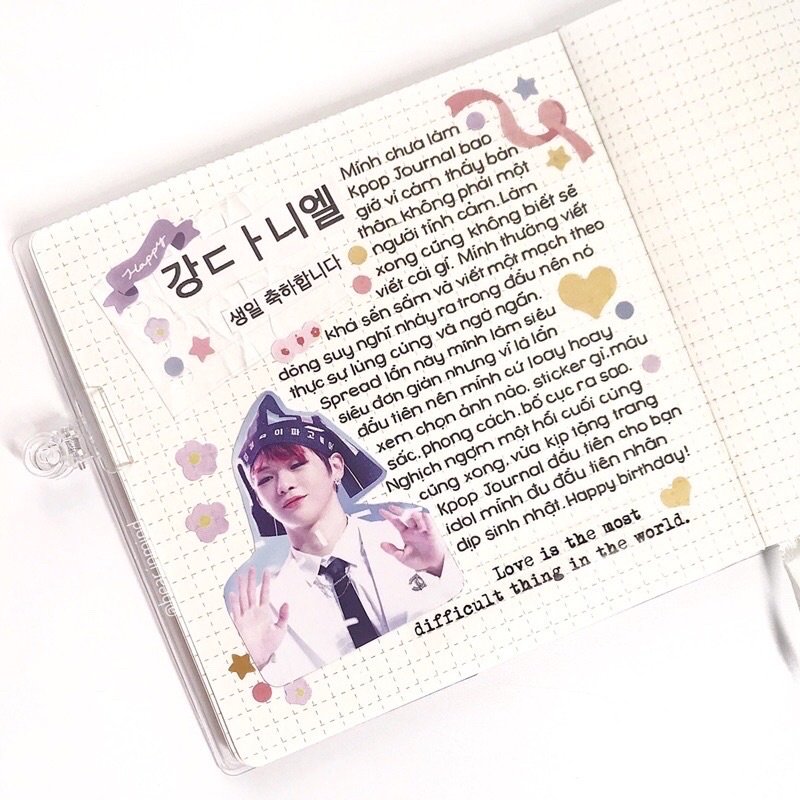 Happy
강ㄷㅏ니엘
생일 축하합니다
Mình chưa làm
Kpop Journal bao
giờ vì cảm thấy bản
thân không phải một
người tình cảm. Làm
xong cũng không biết sẽ
viết cái gì. Mình thường viết
khá sến sẩm và viết một mạch theo
dòng suy nghĩ nhảy ra trong đầu nên nó
thực sự lủng củng và ngớ ngẩn.
Spread lần này mình làm siêu
siêu đơn giản nhưng vì là lần
đầu tiên nên mình cứ loay hoay
xem chọn ảnh nào, sticker gì, màu
sắc, phong cách, bố cục ra sao.
Nghịch ngợm một hồi cuối cùng
cũng xong, vừa kịp tặng trang
Kpop Journal đầu tiên cho bạn
idol mình đu đầu tiên nhân
dịp sinh nhật. Happy birthday!
Love is the most
difficult thing in the world.